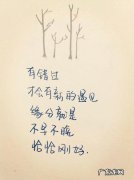 有错过
才会有新的遇见
缘分就是
不早不晚
恰恰刚好.